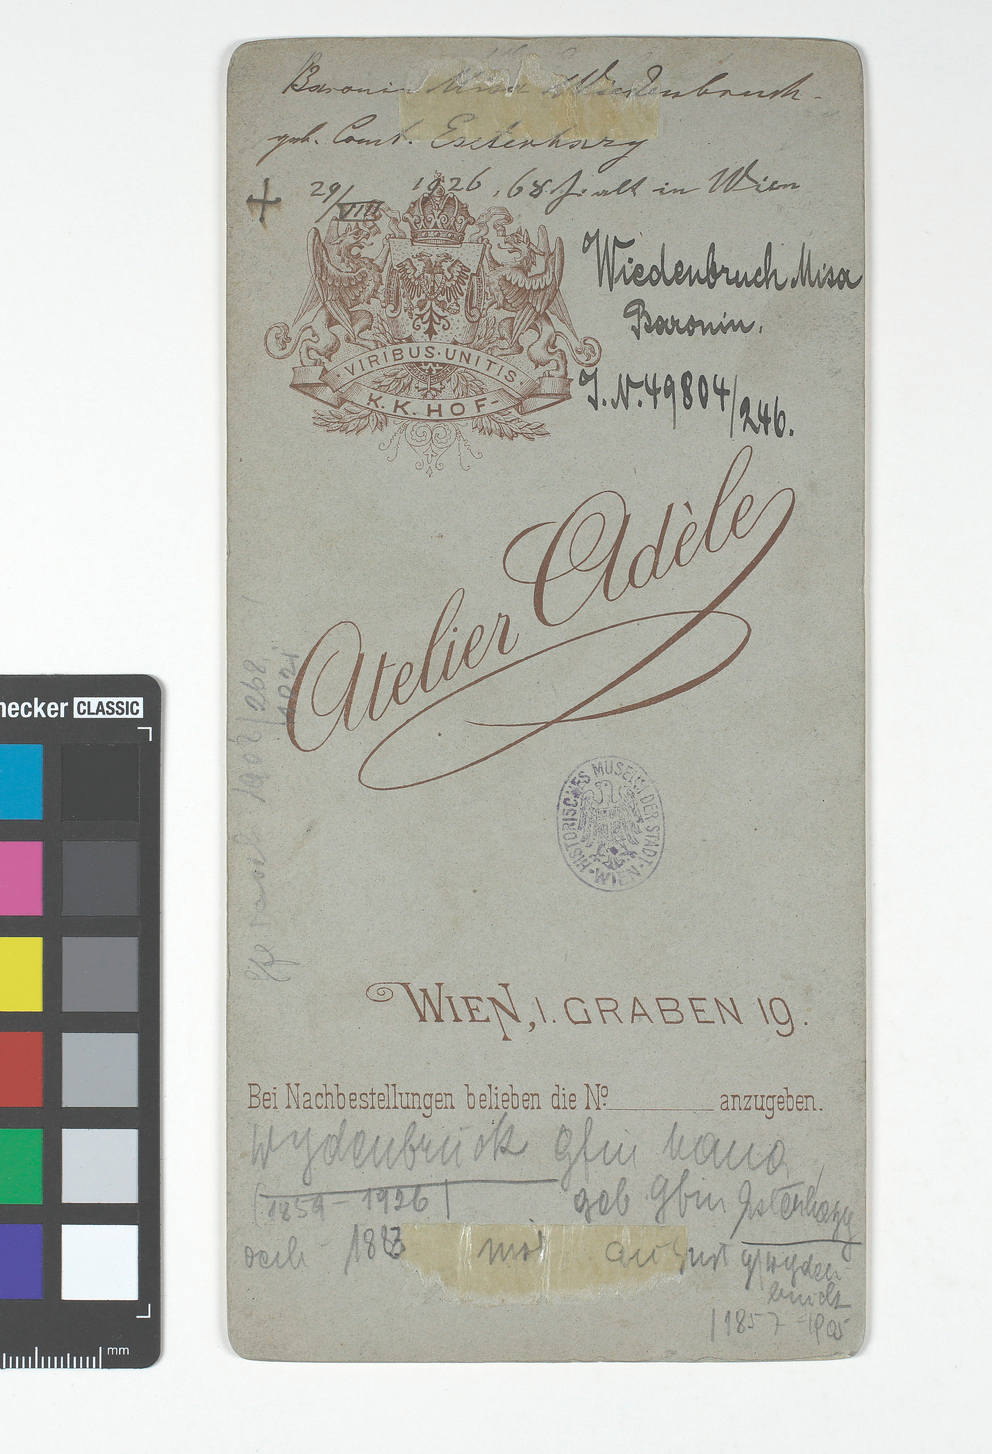 Baronin Misa Wiedenbruch -
geb. Comt. Esterhazy
+ 29/VIII 1926, 68 J. alt in Wien
Wiedenbruch Misa
Baronin.
J.N. 49804/246.
VIRIBUS·UNITIS
K.K. HOF-
Atelier Adèle
1908/268
HISTORISCHES MUSEUM DER STADT·WIEN·
WIEN, I. GRABEN 19.
Bei Nachbestellungen belieben die No. anzugeben.
Wydenbruck Gfin
(1859-1926) geb Gfin Esterhazy
mit August Wyden-
bruck
(1857-1905
hecker CLASSIC
mm